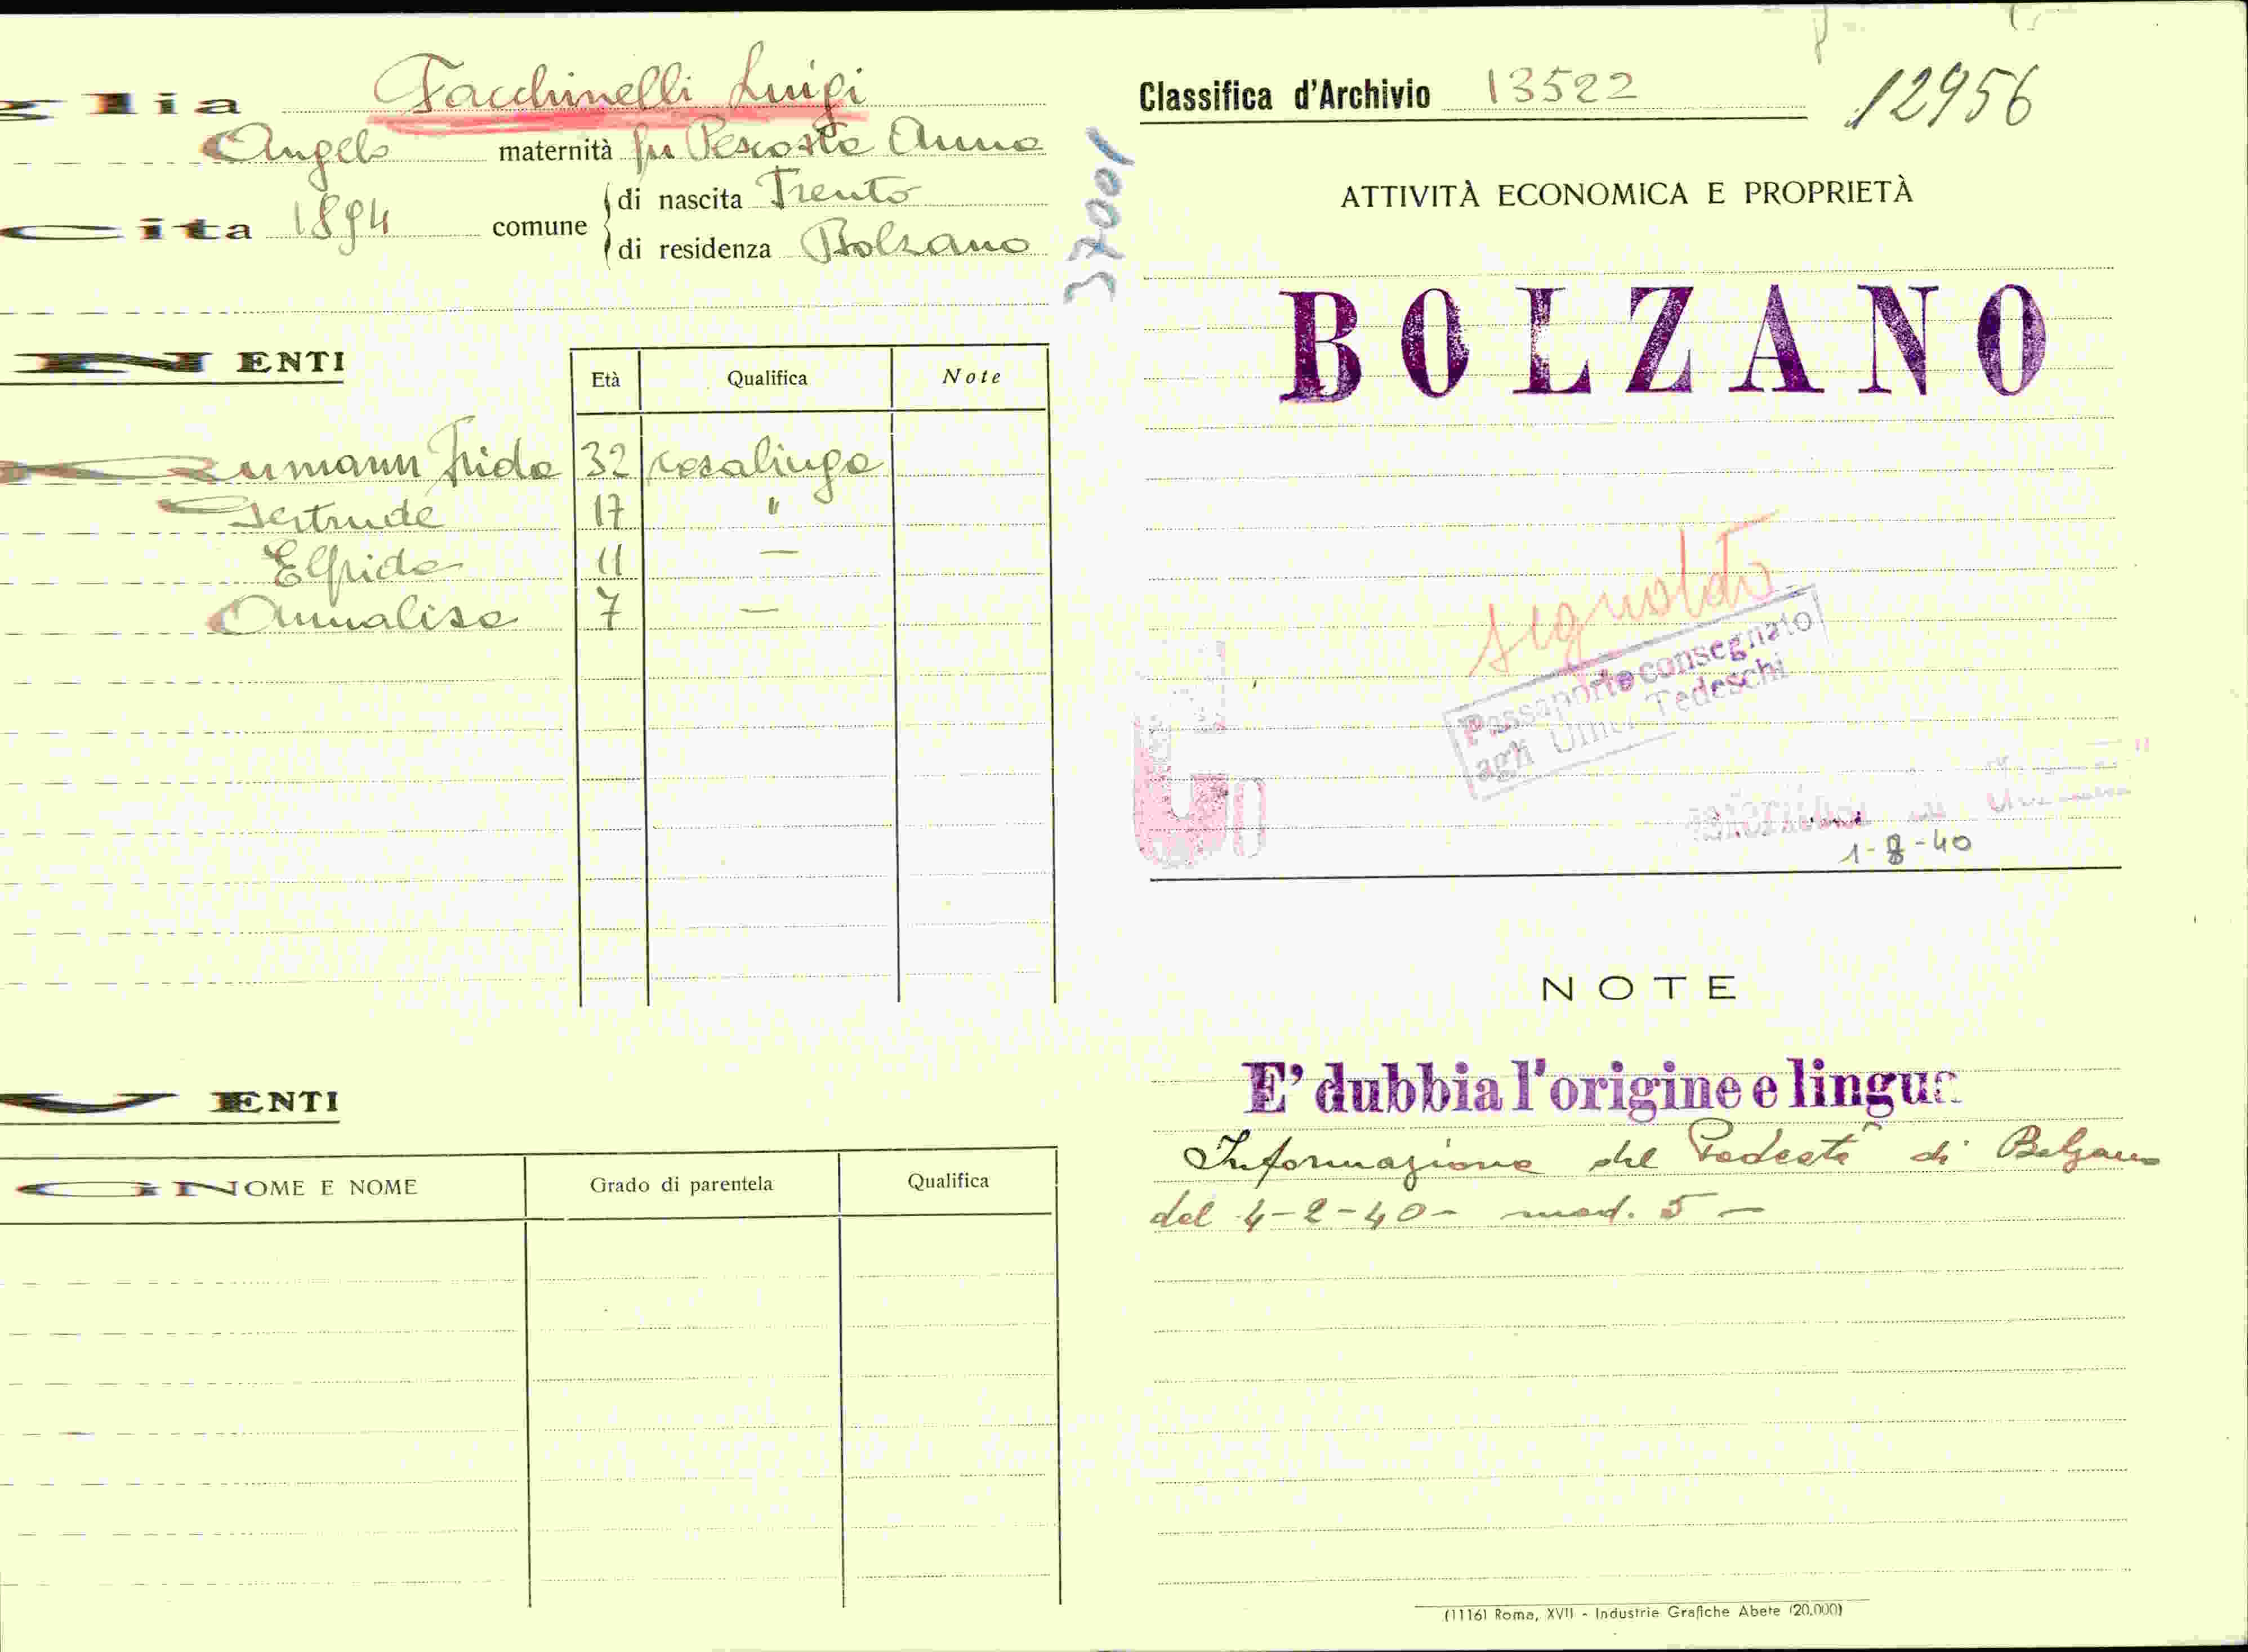 lia Facchinelli Luigi
Angelo maternità fu Pescosta Anna
cita 1894 comune di nascita Trento
di residenza Bolzano
37001
ENTI
Età Qualifica Note
umann Frida 32 casalinga
Gertrude 17 "
Elfrida 11 —
Annalisa 7 —
ENTI
NOME E NOME Grado di parentela Qualifica
Classifica d'Archivio 13522
12956
ATTIVITÀ ECONOMICA E PROPRIETÀ
BOLZANO
segnalato
Passaporto consegnato
agli Uffici Tedeschi
1-8-40
NOTE
E' dubbia l'origine e lingua
Informazione del Podestà di Bolzano
del 4-2-40- mod. 5 —
(1116) Roma, XVII - Industrie Grafiche Abete (20.000)